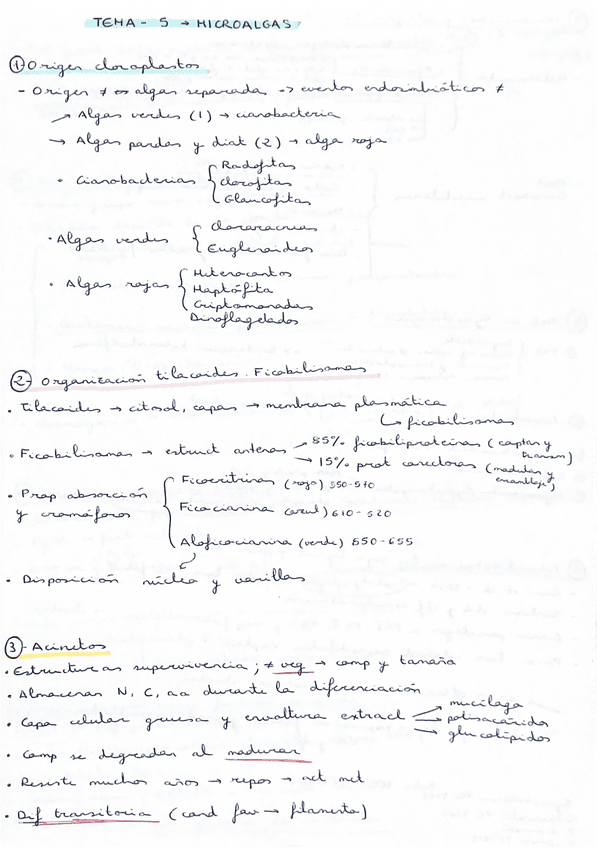 TEMA - 5 → MICROALGAS
① Origen cloroplastos
- Origen ≠ algas separada → eventos endosimbióticos ≠
→ Algas verdes (1) → cianobacteria
→ Algas pardas y diat (2) → alga roja
• Cianobacterias { Rodofitas
Clorofitas
Glaucofitas
• Algas verdes { Cloraracneas
Euglenoideos
• Algas rojas { Heterocontos
Haptófita
Criptomonadas
Dinoflagelados
②- Organización tilacoides. Ficobilisomas
• Tilacoides → citosol, capas → membrana plasmática
↳ ficobilisomas
• Ficobilisomas → estruct antenas → 85% ficobiliproteinas (captan y transm)
→ 15% prot conectoras (maduran y ensamblaje)
• Prop absorción y cromóforos { Ficoeritrina (rojo) 550-570
Ficocianina (azul) 610-620
Aloficocianina (verde) 650-655
• Disposición núcleo y varillas
③- Acinetos
• Estructuras supervivencia; ≠ veg → comp y tamaño
• Almacenan N, C, aa durante la diferenciación
• Capa celular gruesa y envoltura extracel → mucílago
→ polisacáridos
→ glucolípidos
• Comp se degradan al madurar
• Resiste muchos años → repos → act met
• Dif transitoria (cond fav → filamento)